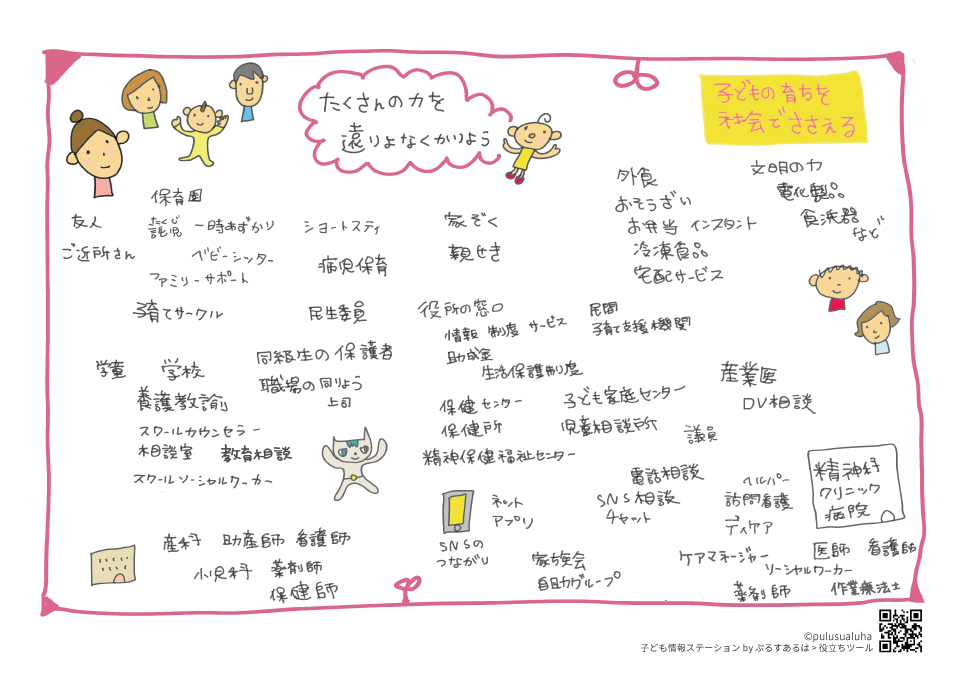 たくさんの力を
遠りよなくかりよう
子どもの育ちを
社会でささえる
保育園
友人
託児
たくじ
一時あずかり
ショートスティ
ご近所さん
ベビーシッター
病児保育
ファミリーサポート
子育てサークル
民生委員
家ぞく
親せき
外食
おそうざい
お弁当 インスタント
冷凍食品
宅配サービス
文明の力
電化製品
食洗器
など
役所の窓口
情報 制度 サービス
助成金
生活保護制度
民間
子育て支援機関
学童
学校
同級生の保護者
職場の同りょう
上司
養護教諭
スクールカウンセラー
相談室
教育相談
スクールソーシャルワーカー
保健センター
保健所
精神保健福祉センター
子ども家庭センター
児童相談所
議員
産業医
DV相談
電話相談
SNS相談
チャット
ヘルパー
訪問看護
デイケア
精神科
クリニック
病院
ネット
アプリ
SNSの
つながり
家族会
自助グループ
産科
助産師
看護師
小児科
薬剤師
保健師
ケアマネージャー
医師
看護師
ソーシャルワーカー
薬剤師
作業療法士
©pulusualuha
子ども情報ステーション by ぷるすあるは > 役立ちツール